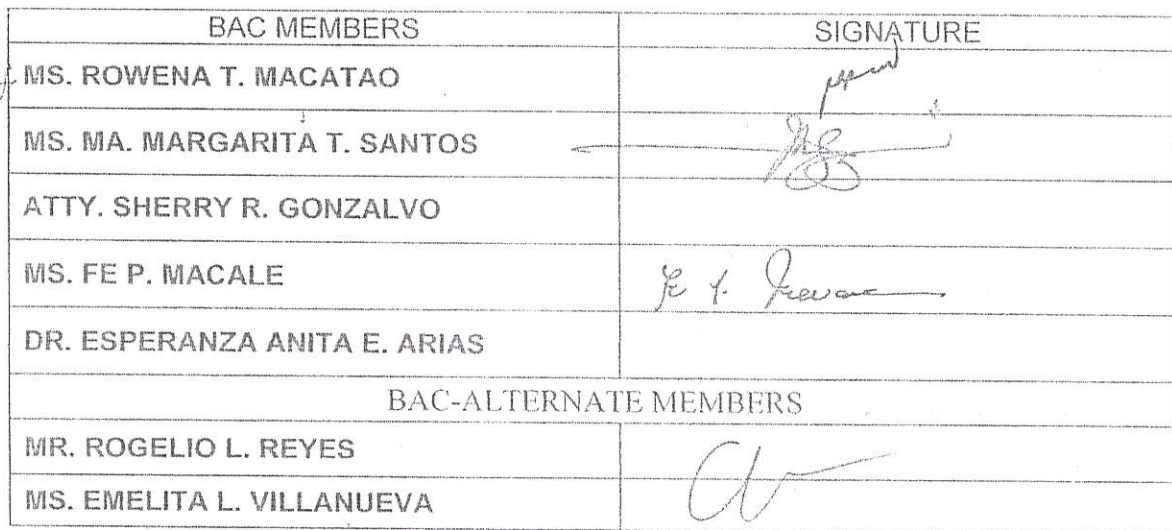 BAC MEMBERS SIGNATURE
MS. ROWENA T. MACATAO
MS. MA. MARGARITA T. SANTOS
ATTY. SHERRY R. GONZALVO
MS. FE P. MACALE
DR. ESPERANZA ANITA E. ARIAS
BAC-ALTERNATE MEMBERS
MR. ROGELIO L. REYES
MS. EMELITA L. VILLANUEVA